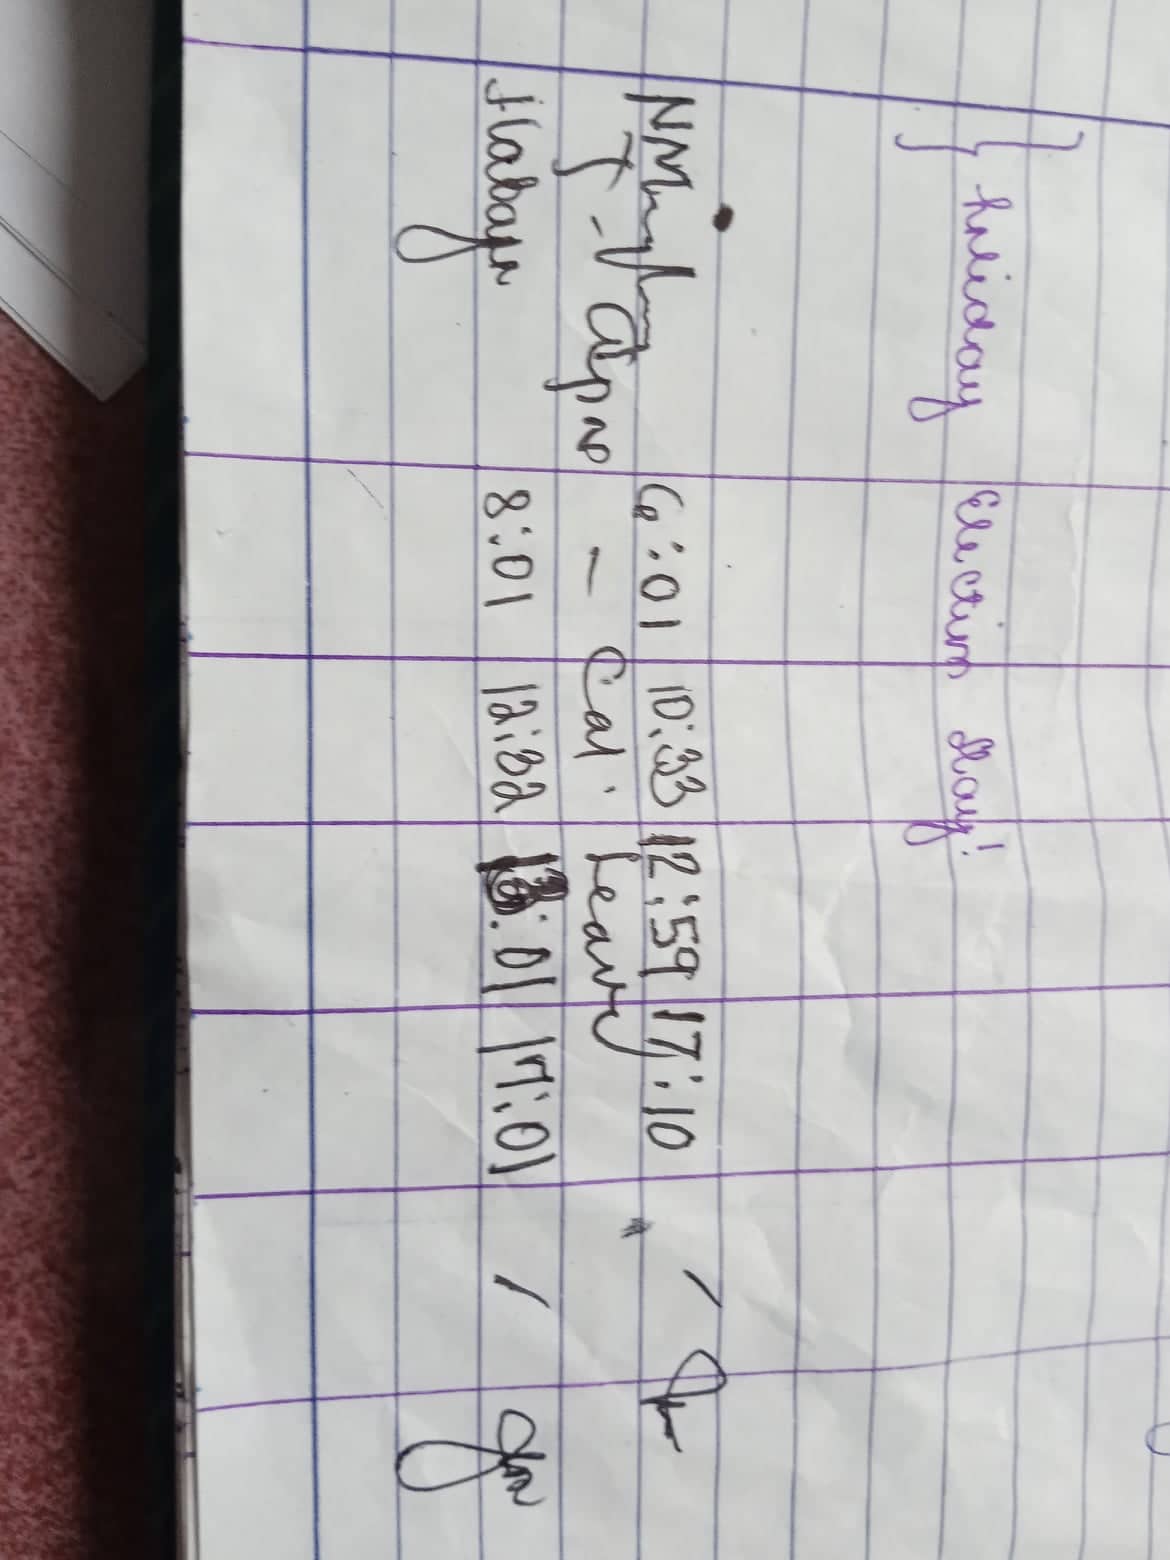 } holiday Election Day!
6:01 10:33 12:59 17:10
T. - Cal. Leave
8:01 12:32 13:01 17:01